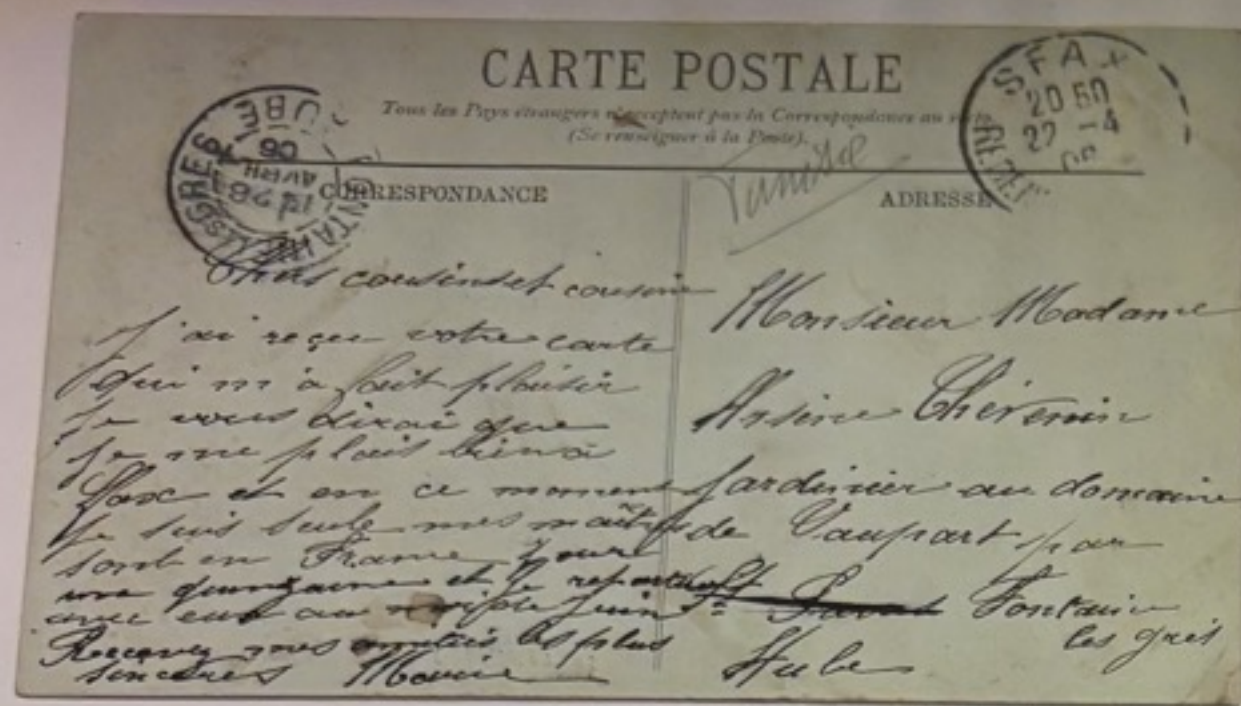 CARTE POSTALE
Tous les Pays étrangers n'acceptent pas la Correspondance au
(Se renseigner à la Poste).
SFAX
20 50
22 -4
CORRESPONDANCE
cousins et cousine
J'ai reçu votre carte
qui m'a fait plaisir
je vous dirai que
je me plais bien à
Sfax et en ce moment
je suis seule mes maîtres
sont en France pour
une quinzaine et je repartirai
avec eux au mois de juin
Recevez mes amitiés les plus
sincères Marie
ADRESSE
Monsieur Madame
Arsène Thévenin
Jardinier au domaine
de Vaupart par
Fontaine
les grés
Aube